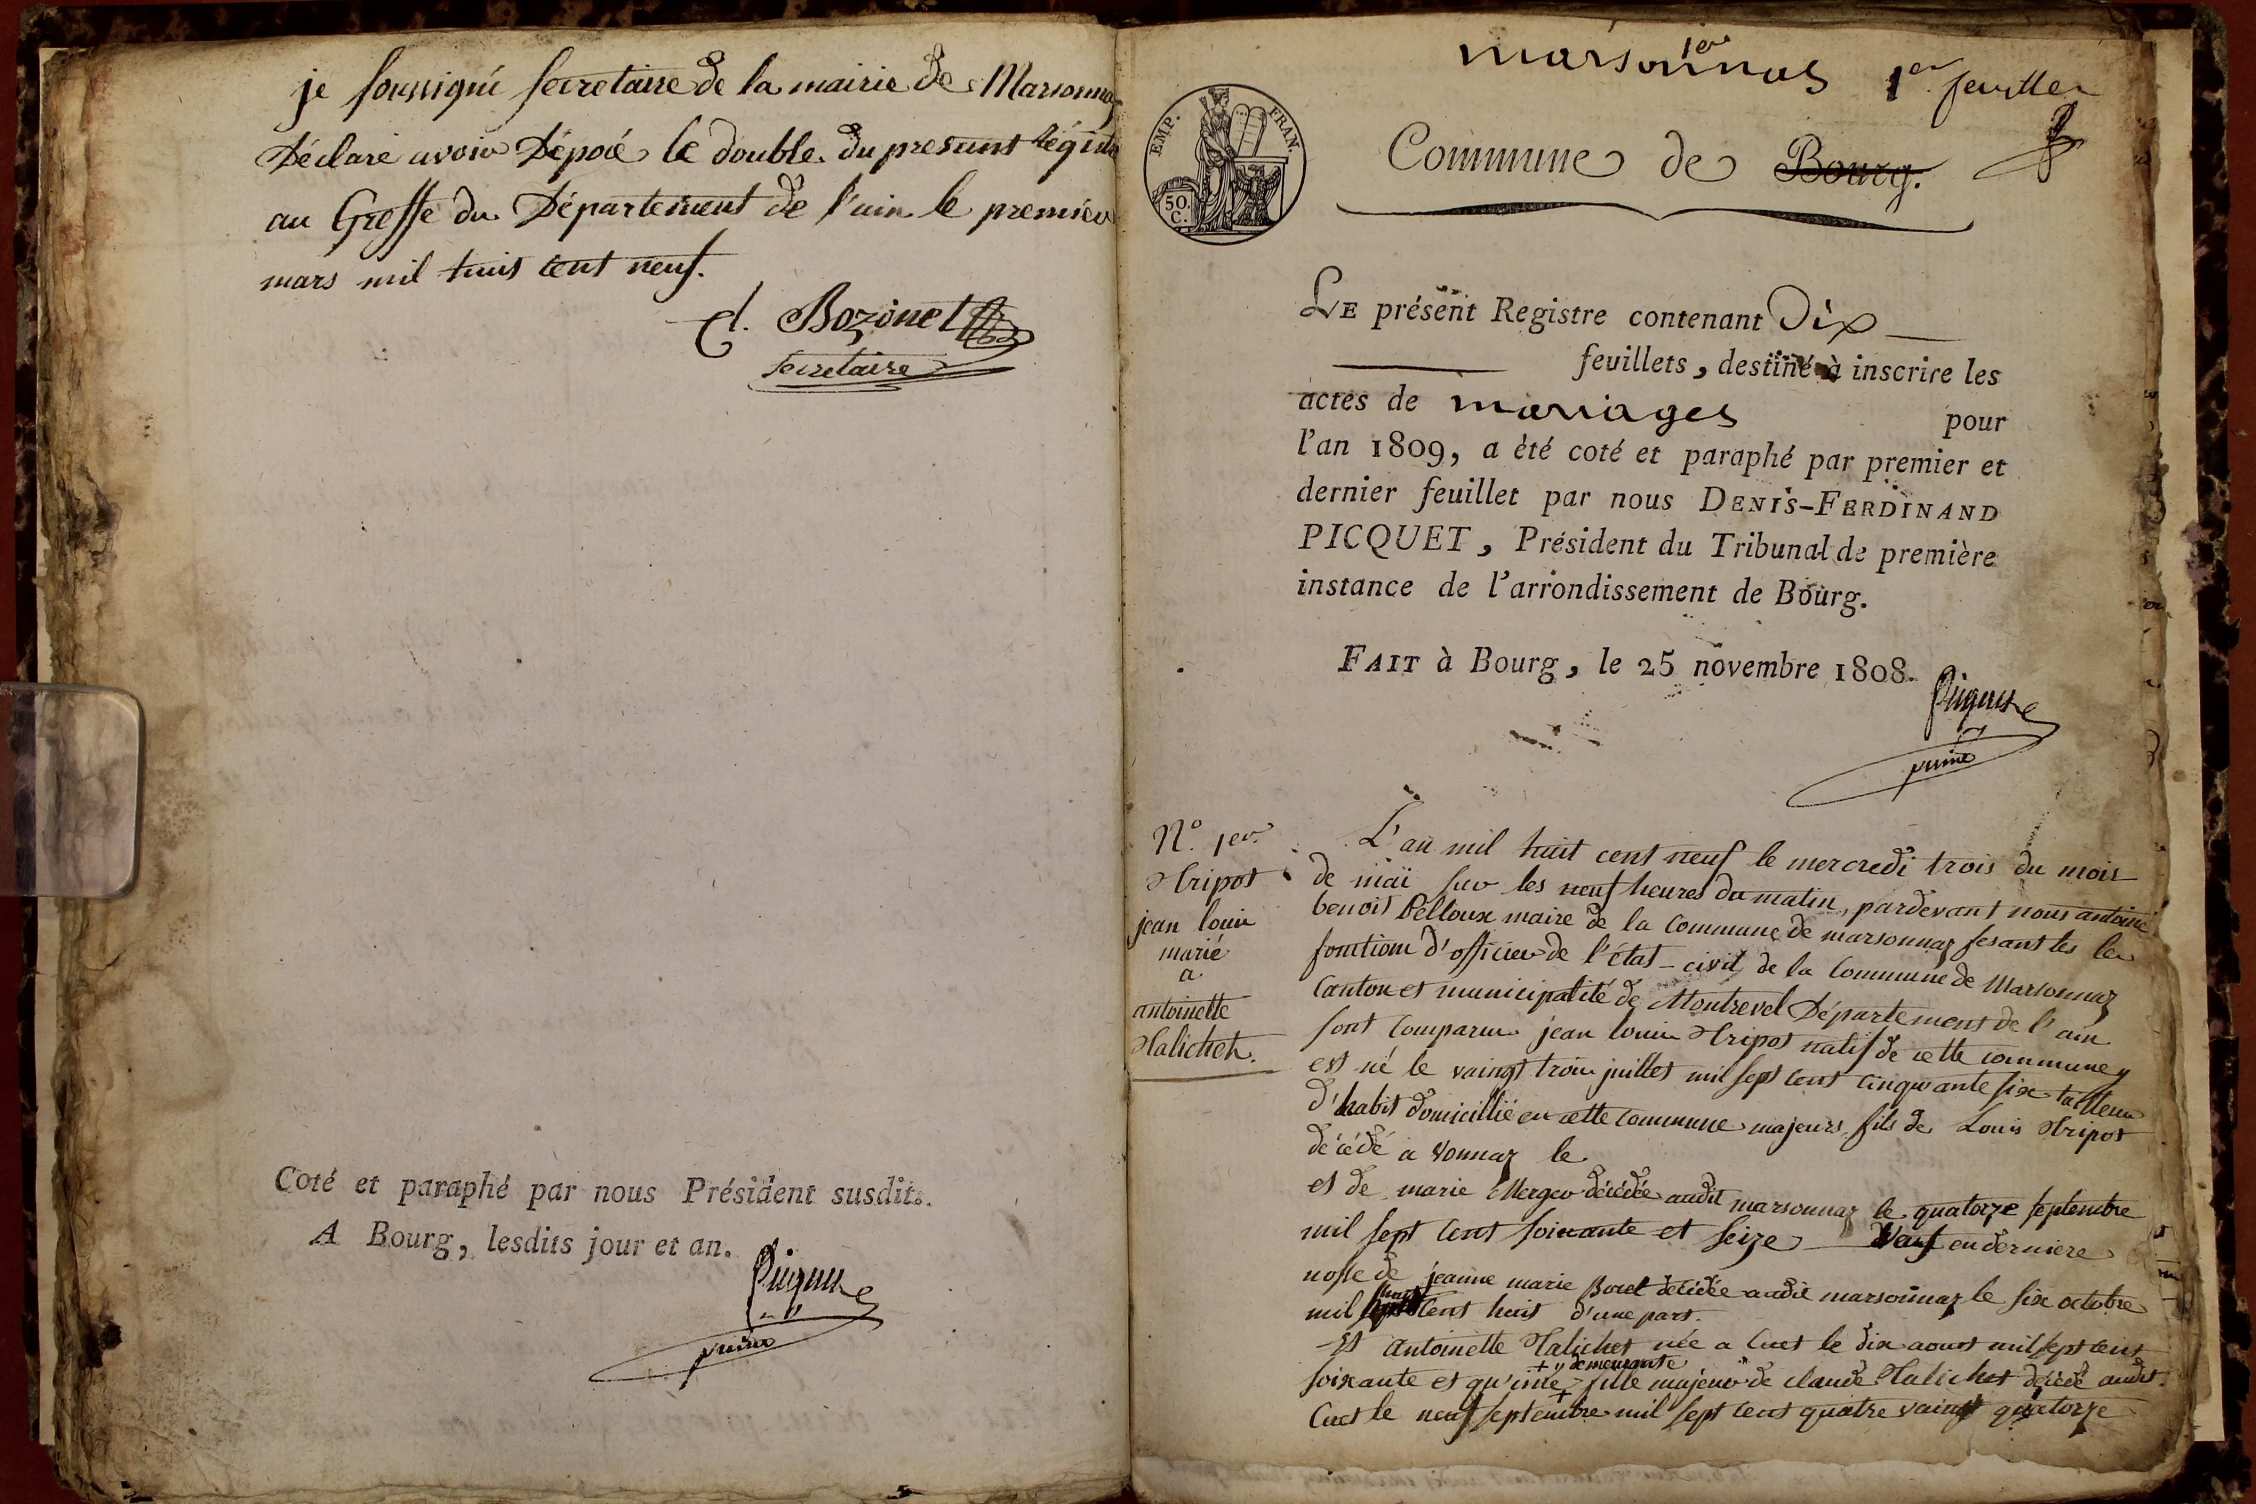 je soussigné secretaire de la mairie de Marsonnaz
Déclare avoir Déposé le double du present Régistre
au Greffe du Département de l'ain le premier
mars mil huit cent neuf.
Cl. Bozonet
secretaire
Coté et paraphé par nous Président susdit.
A Bourg, lesdits jour et an.
Picquet
marsonnas 1er feuillet
EMP. FRAN.
50. C.
Commune de Bourg.
LE présent Registre contenant Dix
feuillets, destiné à inscrire les
actes de mariages pour
l'an 1809, a été coté et paraphé par premier et
dernier feuillet par nous DENIS-FERDINAND
PICQUET, Président du Tribunal de première
instance de l'arrondissement de Bourg.
FAIT à Bourg, le 25 novembre 1808.
Picquet
N.° 1er.
jean louis
marié
a
antoinette
L'an mil huit cent neuf le mercredi trois du mois
de mai sur les neuf heures du matin, pardevant nous antoine
benoit Pelloux maire de la Commune de marsonnaz fesant les
fonctions d'officier de l'état-civil de la Commune de Marsonnaz
Canton et municipalité de Montrevel Département de l'ain
sont Comparus jean louis natif de cette commune y
est né le vaingt trois juillet mil sept cent cinquante six tailleur
d'habit domicillié en cette commune majeur fils de Louis
décédé a vonnaz le
et de marie Merger décédée audit marsonnaz le quatorze septembre
mil sept cent soixante et seize Veuf en derniere
nosse de jeanne marie Borel décédée audit marsonnaz le six octobre
mil huit Cent huit d'une part.
Et antoinette née a Cuet le dix aout mil sept cent
soixante et qu'inze + demeurante fille majeur de claude décédé audit
Cuet le neuf septembre mil sept cent quatre vaingt quatorze